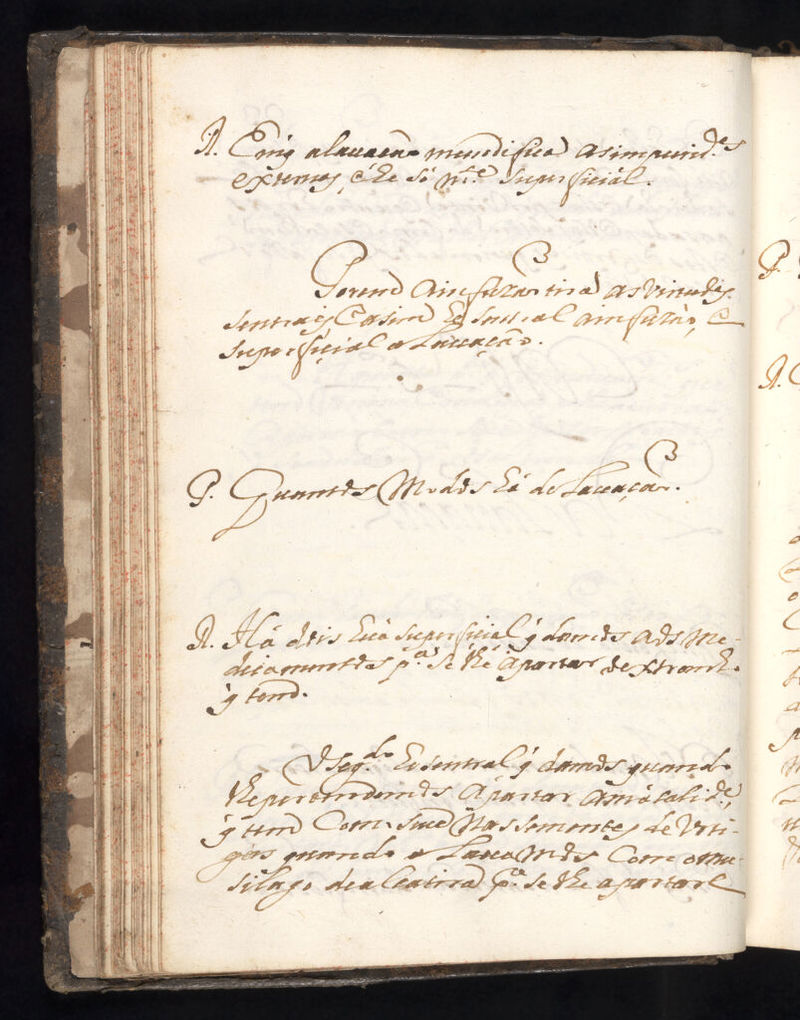 R. Em q̃ a lavação mundifica as impurid.es
externas, e he só m.te superficial.
Porem a infuzão tira as virtudes
sentraes e asim he sentral a infuzão, e
superficial a Lavação.
P. Quantos Modos há de Lavação.
R. Há dois hũa superficial q̃ damos aos Me-
dicamentos p.a se lhe apartar o extranh.o
q̃ tem.
O seg.do he sentral q̃ damos quando
lhe pertendemos apartar a má calid.e,
q̃ tem Como suced nas sementes de Orti-
gas quando as Lavamos Com o mu-
silago de alcatira p.a se lhe apartar
P.
R.